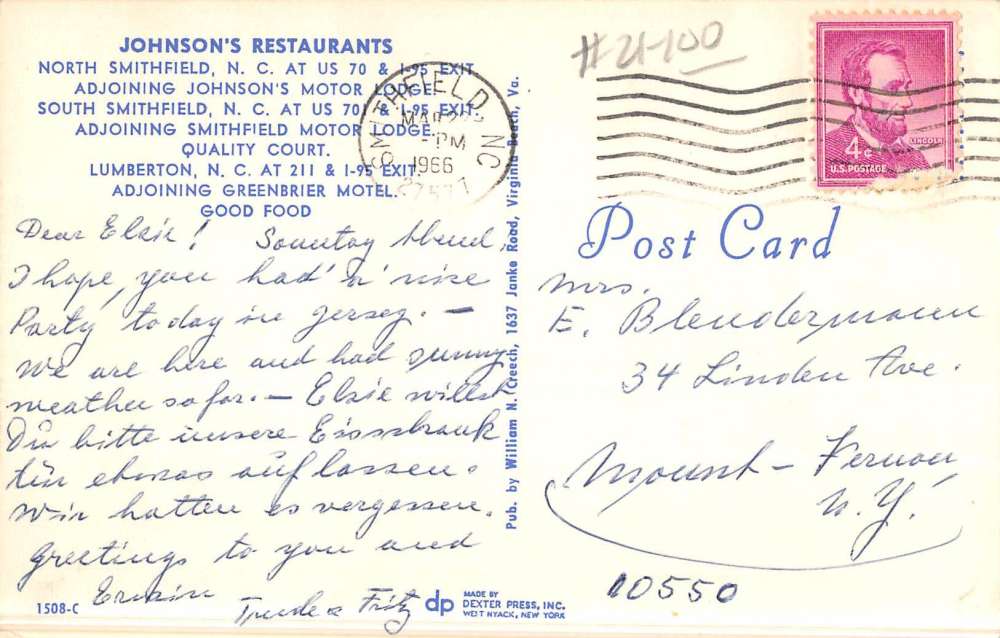 JOHNSON'S RESTAURANTS
NORTH SMITHFIELD, N. C. AT US 70 & I-95 EXIT
ADJOINING JOHNSON'S MOTOR LODGE.
SOUTH SMITHFIELD, N. C. AT US 701 & I-95 EXIT
ADJOINING SMITHFIELD MOTOR LODGE.
QUALITY COURT.
LUMBERTON, N. C. AT 211 & I-95 EXIT.
ADJOINING GREENBRIER MOTEL.
GOOD FOOD
Dear Elsie! Sonntag Abend,
I hope, you had a nise
Party today in Jersey. —
We are here and had sunny
weather so far. — Elsie willst
Du bitte unsere Eisschrank
tür etwas auflassen.
Wir hatten es vergessen.
Greetings to you and
Erwin
Trude & Fritz
1508-C
dp MADE BY
DEXTER PRESS, INC.
WEST NYACK, NEW YORK
Pub. by William N. Creech, 1637 Janke Road, Virginia Beach, Va.
#21-100
SMITHFIELD NC
MAR
PM
1966
27577
LINCOLN
4¢
U.S. POSTAGE
Post Card
Mrs.
E. Blendermann
34 Linden Ave.
Mount-Vernon
N.Y.
10550